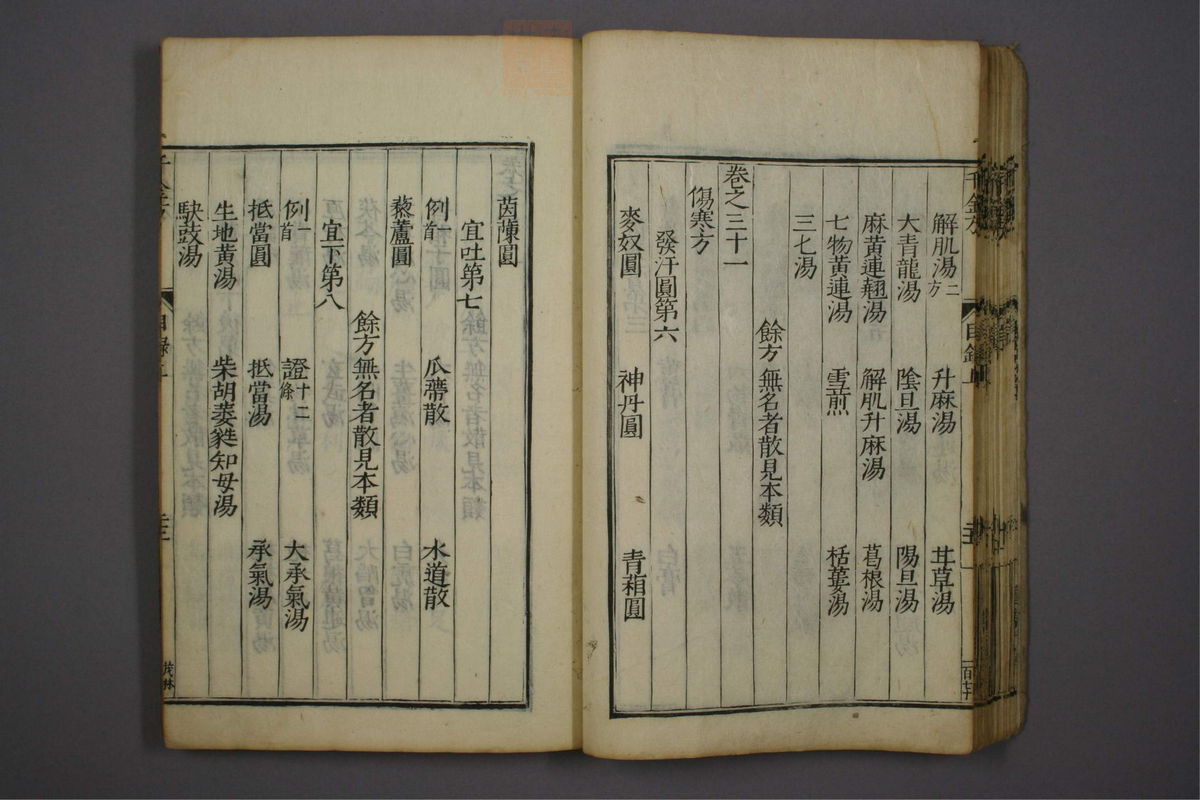 解肌湯二方 升麻湯 甘草湯
大青龍湯 陰旦湯 陽旦湯
麻黃連翹湯 解肌升麻湯 葛根湯
七物黃連湯 雪煎 栝蔞湯
三七湯
餘方無名者散見本類
卷之三十一
傷寒方
發汗圓第六
麥奴圓 神丹圓 青葙圓
茵蔯圓
宜吐第七
例一首 瓜蔕散 水道散
藜蘆圓
餘方無名者散見本類
宜下第八
例一首 證十二條 大承氣湯
抵當圓 抵當湯 承氣湯
生地黃湯 柴胡蔞㽔知母湯
䜴豉湯